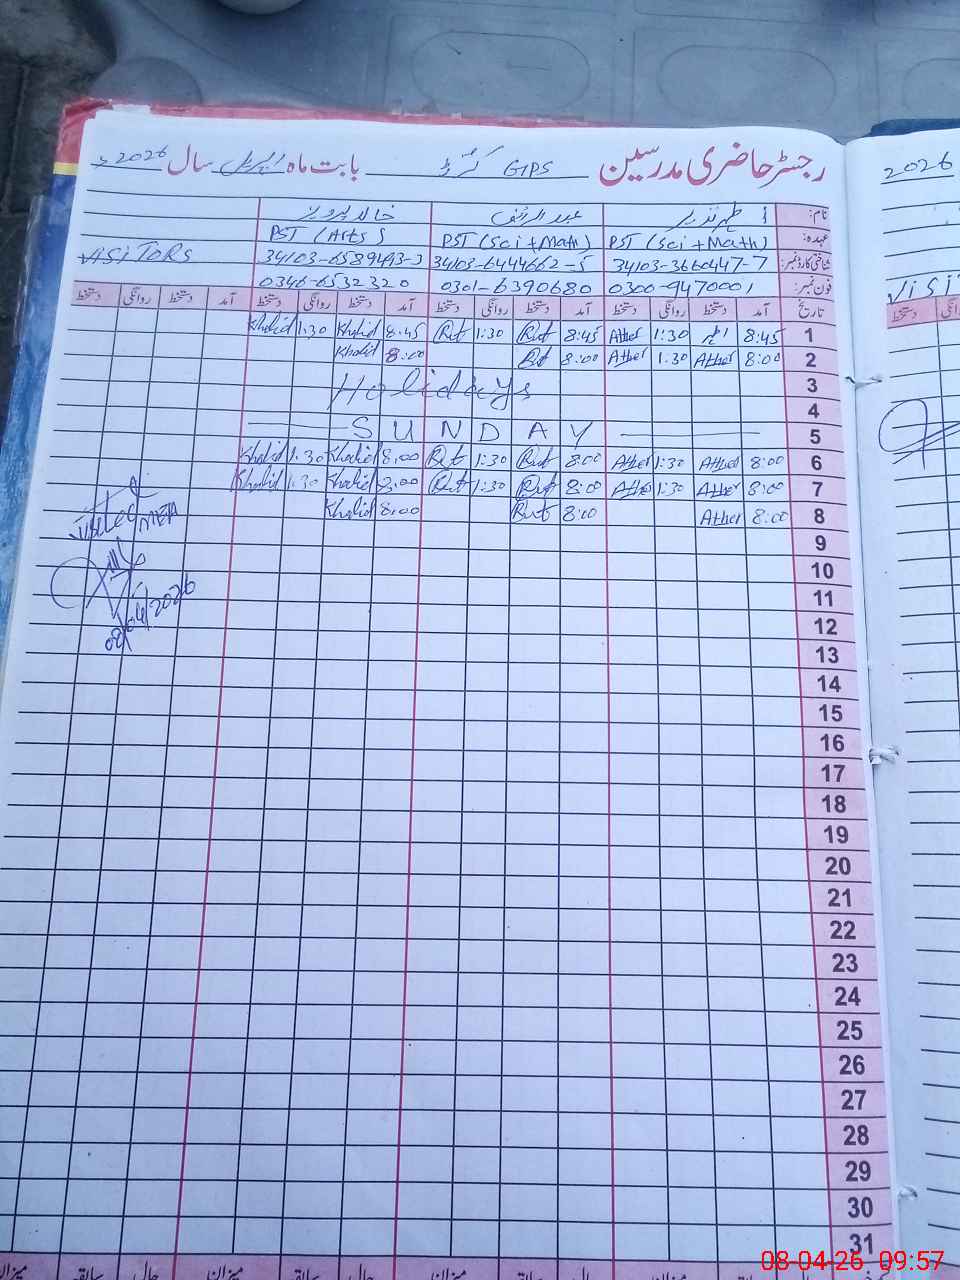 رجسٹر حاضری مدرسین GPS بابت ماہ اپریل سال 2026
2026
نام: اطہر نذیر عبدالرؤف خالد پرویز
عہدہ: PST (Sci + Math) PST (Sci + Math) PST (Arts)
شناختی کارڈ نمبر: 34103-3660447-7 34103-6444662-5 VISITORS
فون نمبر: 0300-9470001 0301-6390680 0346-6532320
تاریخ آمد دستخط روانگی دستخط آمد دستخط روانگی دستخط آمد دستخط روانگی دستخط آمد دستخط روانگی دستخط
دستخط
1 8:45 اطہر 1:30 Ather 8:45 Rut 1:30 Rut 8:45 Khalid 1:30 Khalid
2 8:00 Ather 1:30 Ather 8:00 Rut 8:00 Khalid
3 Holidays
4
5 SUNDAY
6 8:00 Ather 1:30 Ather 8:00 Rut 1:30 Rut 8:00 Khalid 1:30 Khalid
7 8:00 Ather 1:30 Ather 8:00 Rut 1:30 Rut 8:00 Khalid 1:30 Khalid
8 8:00 Ather 8:00 Rut 8:00 Khalid
Visited
MEA
08/04/2026
9
10
11
12
13
14
15
16
17
18
19
20
21
22
23
24
25
26
27
28
29
30
31
میزان حال سابقہ میزان حال سابقہ میزان حال سابقہ میزان
08-04-26 09:57